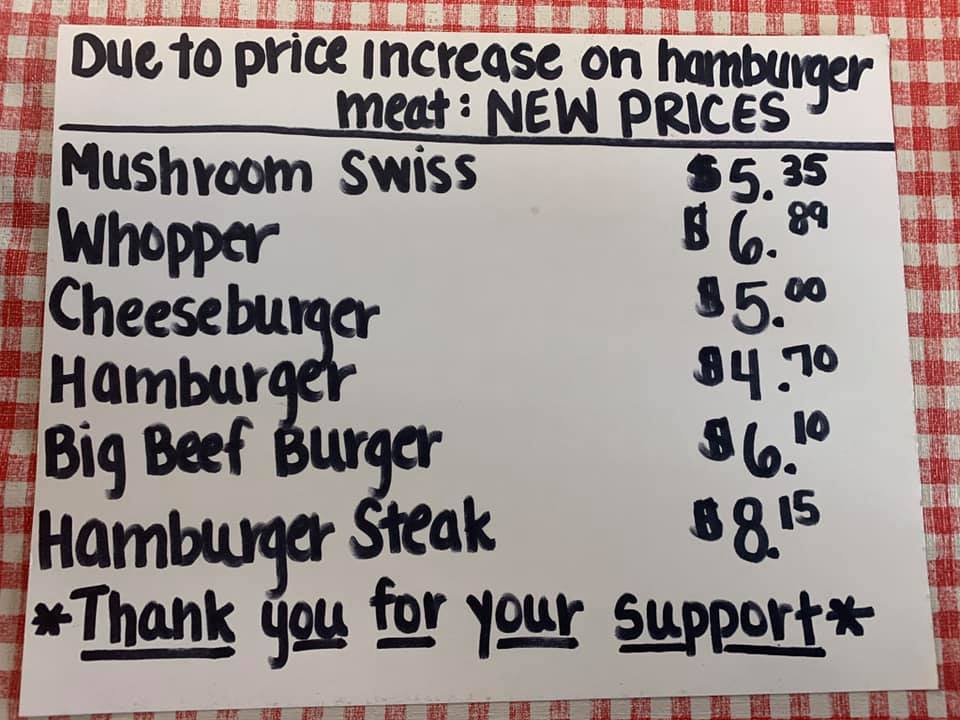 Due to price increase on hamburger
meat: NEW PRICES
Mushroom Swiss $5.35
Whopper $6.89
Cheeseburger $5.00
Hamburger $4.70
Big Beef Burger $6.10
Hamburger Steak $8.15
*Thank you for your support*